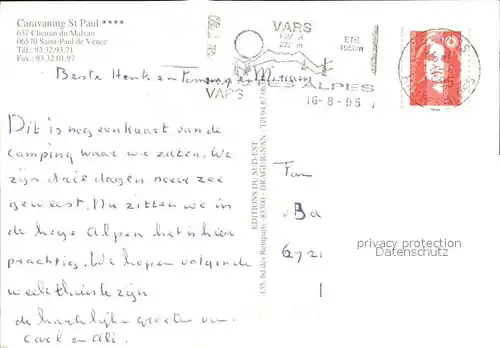 Caravaning St Paul ****
637 Chemin du Malvan
06570 Saint-Paul de Vence
Tél.: 93.32.93.71
Fax.: 93.32.01.97
VARS
ETE
1650m
VARS
DES ALPES
16-8-95
Beste Henk en Miriam
Dit is nog een kaart van de
camping waar we zaten. We
zijn drie dagen naar zee
geweest. Nu zitten we in
de hoge Alpen het is hier
prachtig. We hopen volgende
week thuis te zijn
de hartelijke groeten van
Carl en Ali.
EDITIONS DU SUD-EST
135, bd des Remparts - 83300 - DRAGUIGNAN - Tél 94.67.06
Fam
v Bd
672
privacy protection
Datenschutz